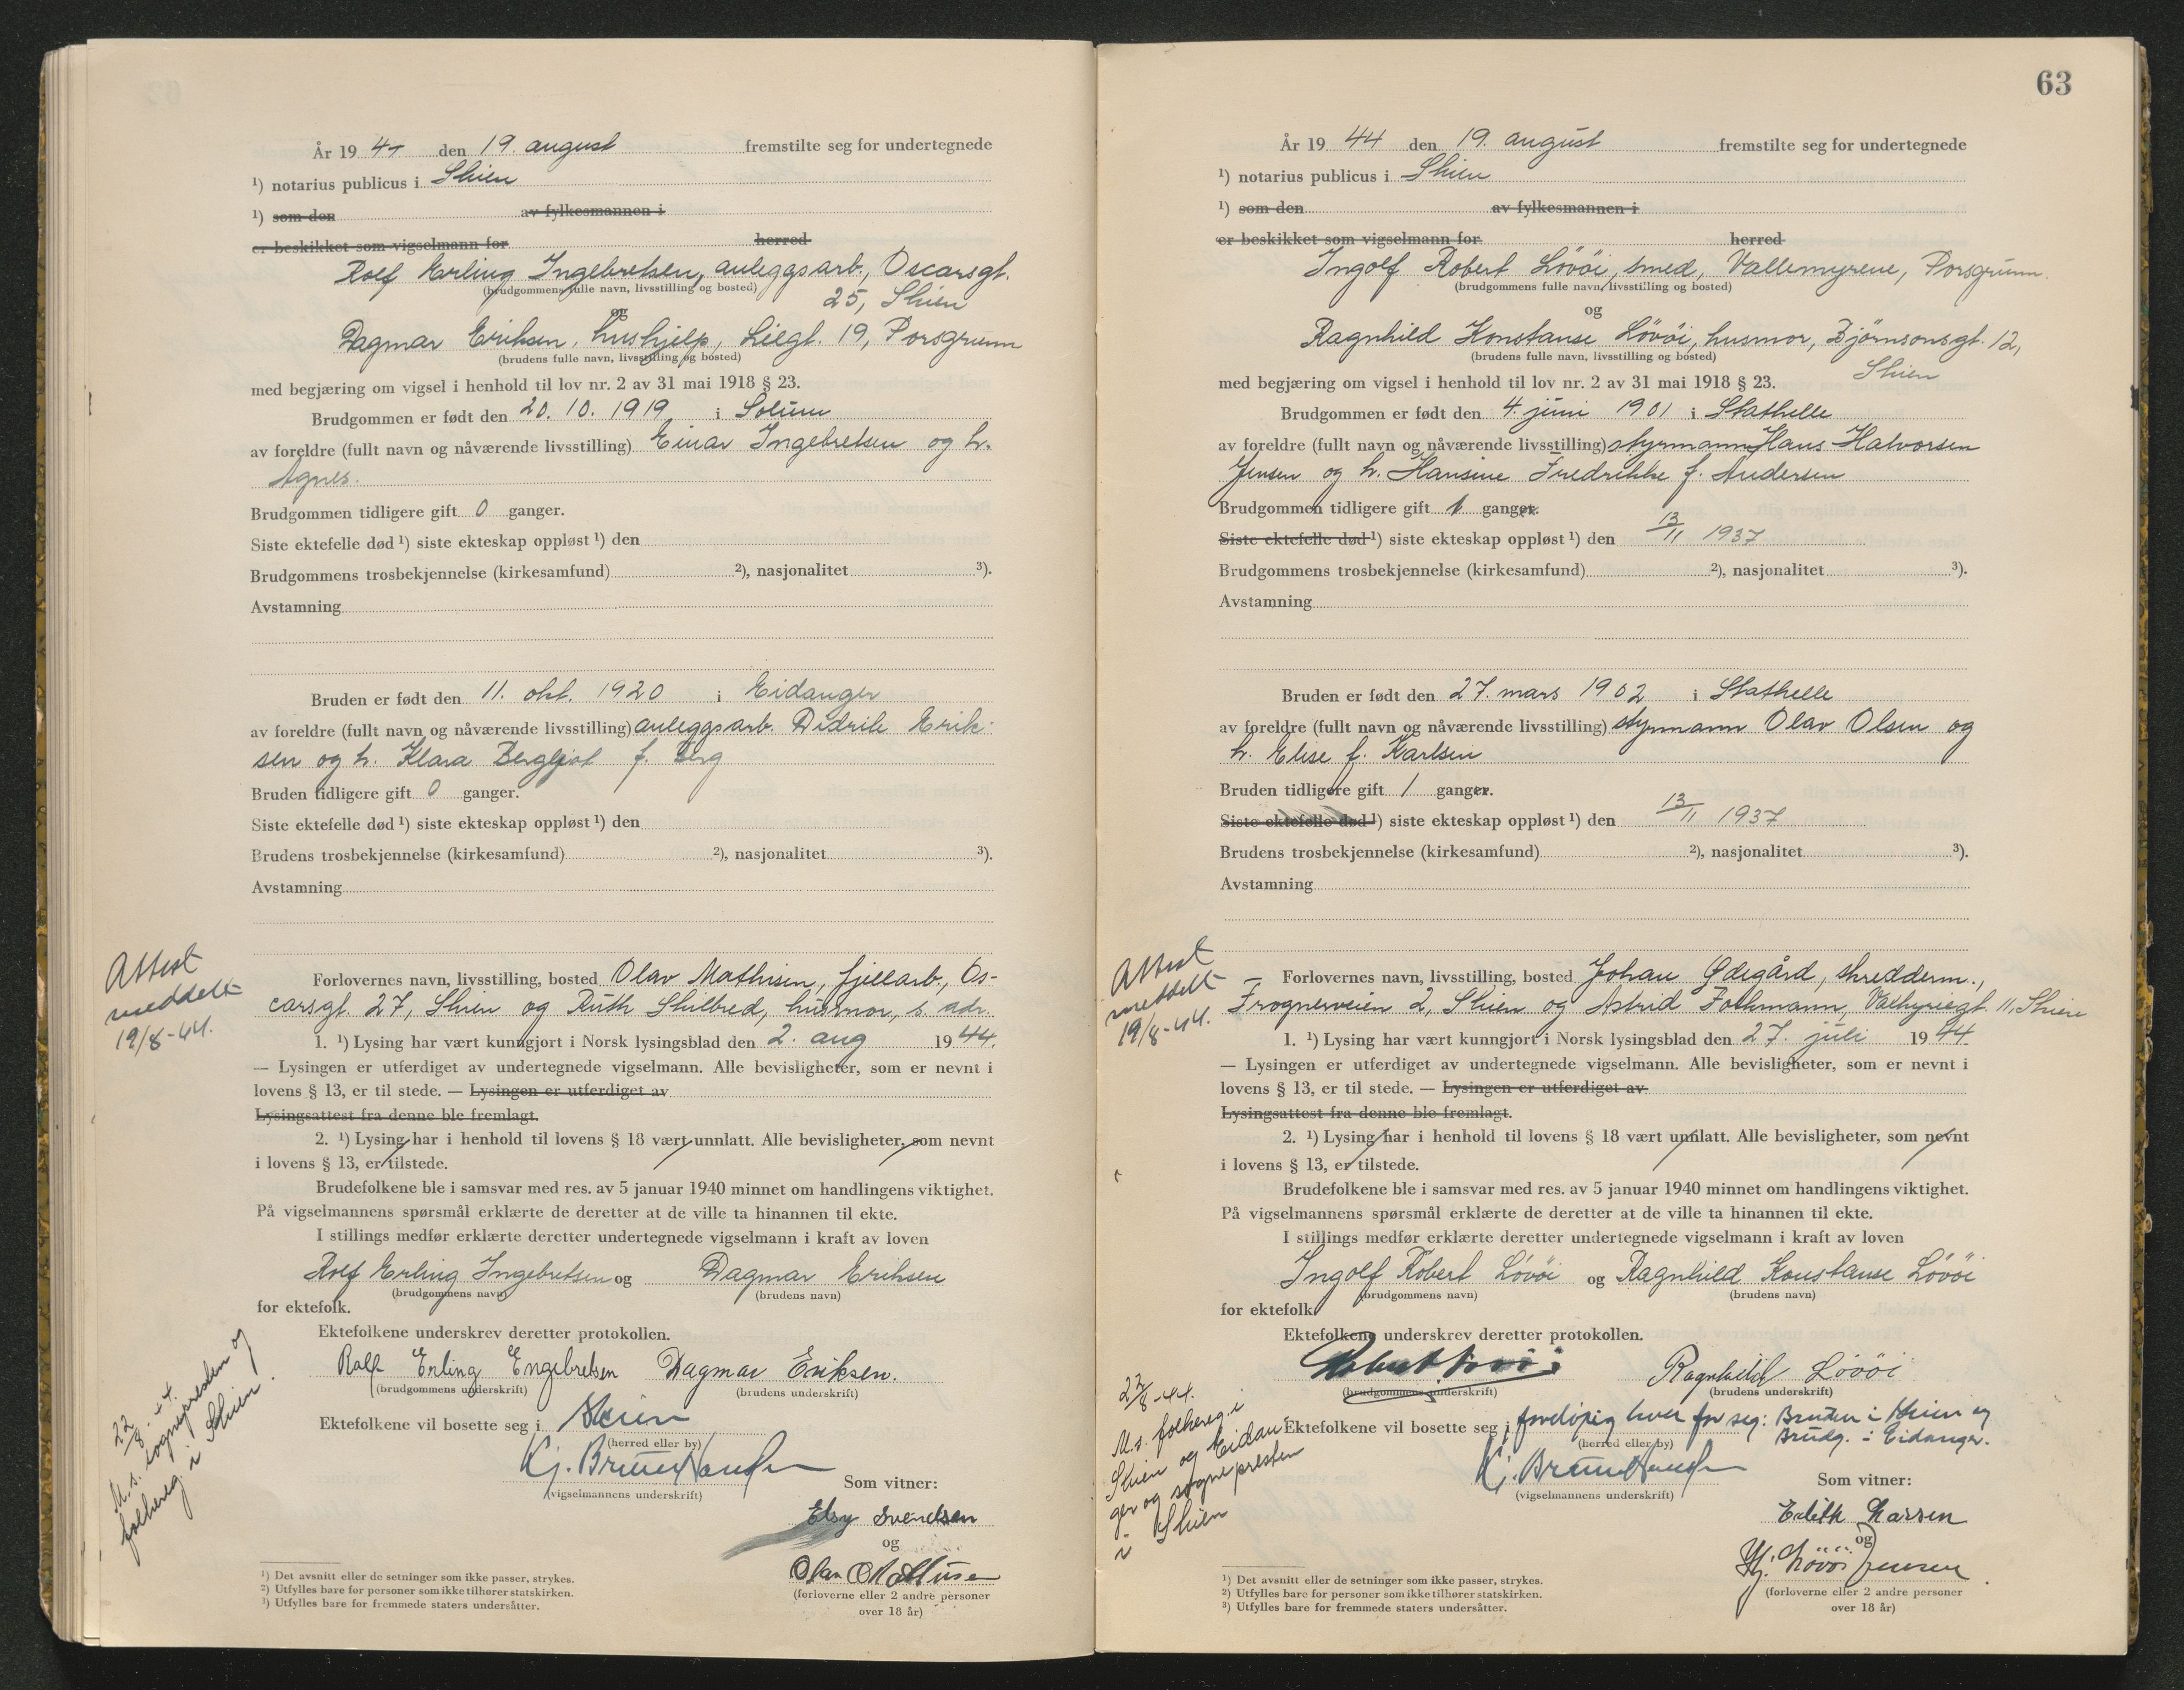 År 1944 den 19. august fremstilte seg for undertegnede
¹) notarius publicus i Skien
¹) som den av fylkesmannen i
er beskikket som vigselmann for herred
Rolf Erling Ingebretsen, anleggsarb., Oscarsgt.
(brudgommens fulle navn, livsstilling og bosted) 25, Skien
og
Dagmar Eriksen, hushjelp, Liegt. 19, Porsgrunn
(brudens fulle navn, livsstilling og bosted)
med begjæring om vigsel i henhold til lov nr. 2 av 31 mai 1918 § 23.
Brudgommen er født den 20. 10. 1919 i Solum
av foreldre (fullt navn og nåværende livsstilling) Einar Ingebretsen og h.
Agnes.
Brudgommen tidligere gift 0 ganger.
Siste ektefelle død ¹) siste ekteskap oppløst ¹) den
Brudgommens trosbekjennelse (kirkesamfund) ²), nasjonalitet ³).
Avstamning
Bruden er født den 11. okt. 1920 i Eidanger
av foreldre (fullt navn og nåværende livsstilling) anleggsarb. Didrik Erik-
sen og h. Klara Bergljot f. Berg
Bruden tidligere gift 0 ganger.
Siste ektefelle død ¹) siste ekteskap oppløst ¹) den
Brudens trosbekjennelse (kirkesamfund) ²), nasjonalitet ³).
Avstamning
Attest
meddelt
19/8-44.
Forlovernes navn, livsstilling, bosted Olav Mathisen, fjellarb., Os-
carsgt. 27, Skien og Ruth Stilbred, husmor, s. adr.
1. ¹) Lysing har vært kunngjort i Norsk lysingsblad den 2. aug 1944.
— Lysingen er utferdiget av undertegnede vigselmann. Alle bevisligheter, som er nevnt i
lovens § 13, er til stede. — Lysingen er utferdiget av
Lysingsattest fra denne ble fremlagt.
2. ¹) Lysing har i henhold til lovens § 18 vært unnlatt. Alle bevisligheter, som nevnt
i lovens § 13, er tilstede.
Brudefolkene ble i samsvar med res. av 5 januar 1940 minnet om handlingens viktighet.
På vigselmannens spørsmål erklærte de deretter at de ville ta hinannen til ekte.
I stillings medfør erklærte deretter undertegnede vigselmann i kraft av loven
Rolf Erling Ingebretsen og Dagmar Eriksen
(brudgommens navn) (brudens navn)
for ektefolk.
Ektefolkene underskrev deretter protokollen.
Rolf Erling Engebretsen Dagmar Eriksen.
(brudgommens underskrift) (brudens underskrift)
Ektefolkene vil bosette seg i Skien
(herred eller by)
(vigselmannens underskrift)
22/8-44.
M. s. sognepresten og
folkereg. i Skien.
Som vitner:
Elsy Svendsen
og
Olav Mathisen
(forloverne eller 2 andre personer
over 18 år)
¹) Det avsnitt eller de setninger som ikke passer, strykes.
²) Utfylles bare for personer som ikke tilhører statskirken.
³) Utfylles bare for fremmede staters undersåtter.
63
År 1944 den 19. august fremstilte seg for undertegnede
¹) notarius publicus i Skien
¹) som den av fylkesmannen i
er beskikket som vigselmann for herred
Ingolf Robert Lövöi, smed, Vallemyrene, Porsgrunn
(brudgommens fulle navn, livsstilling og bosted)
og
Ragnhild Konstanse Lövöi, husmor, Björnsonsgt. 12,
(brudens fulle navn, livsstilling og bosted)
Skien
med begjæring om vigsel i henhold til lov nr. 2 av 31 mai 1918 § 23.
Brudgommen er født den 4. juni 1901 i Stathelle
av foreldre (fullt navn og nåværende livsstilling) styrmann Hans Halvorsen
Jensen og h. Hansine Fredrikke f. Andersen
Brudgommen tidligere gift 1 ganger.
Siste ektefelle død ¹) siste ekteskap oppløst ¹) den 13/11 1937
Brudgommens trosbekjennelse (kirkesamfund) ²), nasjonalitet ³).
Avstamning
Bruden er født den 27. mars 1902 i Stathelle
av foreldre (fullt navn og nåværende livsstilling) styrmann Olav Olsen og
h. Elise f. Karlsen
Bruden tidligere gift 1 ganger.
Siste ektefelle død ¹) siste ekteskap oppløst ¹) den 13/11 1937
Brudens trosbekjennelse (kirkesamfund) ²), nasjonalitet ³).
Avstamning
Attest
meddelt
19/8-44.
Forlovernes navn, livsstilling, bosted Johan Ødegård, skredderm.,
Frognerveien 2, Skien og Astrid Zothmann, Valkyriegt. 11, Skien
1. ¹) Lysing har vært kunngjort i Norsk lysingsblad den 27. juli 1944
— Lysingen er utferdiget av undertegnede vigselmann. Alle bevisligheter, som er nevnt i
lovens § 13, er til stede. — Lysingen er utferdiget av
Lysingsattest fra denne ble fremlagt.
2. ¹) Lysing har i henhold til lovens § 18 vært unnlatt. Alle bevisligheter, som nevnt
i lovens § 13, er tilstede.
Brudefolkene ble i samsvar med res. av 5 januar 1940 minnet om handlingens viktighet.
På vigselmannens spørsmål erklærte de deretter at de ville ta hinannen til ekte.
I stillings medfør erklærte deretter undertegnede vigselmann i kraft av loven
Ingolf Robert Lövöi og Ragnhild Konstanse Lövöi
(brudgommens navn) (brudens navn)
for ektefolk.
Ektefolkene underskrev deretter protokollen.
Robert Lövöi Ragnhild Lövöi
(brudgommens underskrift) (brudens underskrift)
Ektefolkene vil bosette seg i foreløpig hver for seg: Bruden i Skien og
(herred eller by) Brudg. i Eidanger.
(vigselmannens underskrift)
22/8-44.
M. s. folkereg. i
Skien og Eidan-
ger og sognepresten
i Skien
Som vitner:
Edith Larsen
og
Hj. Lövöi Jensen
(forloverne eller 2 andre personer
over 18 år)
¹) Det avsnitt eller de setninger som ikke passer, strykes.
²) Utfylles bare for personer som ikke tilhører statskirken.
³) Utfylles bare for fremmede staters undersåtter.